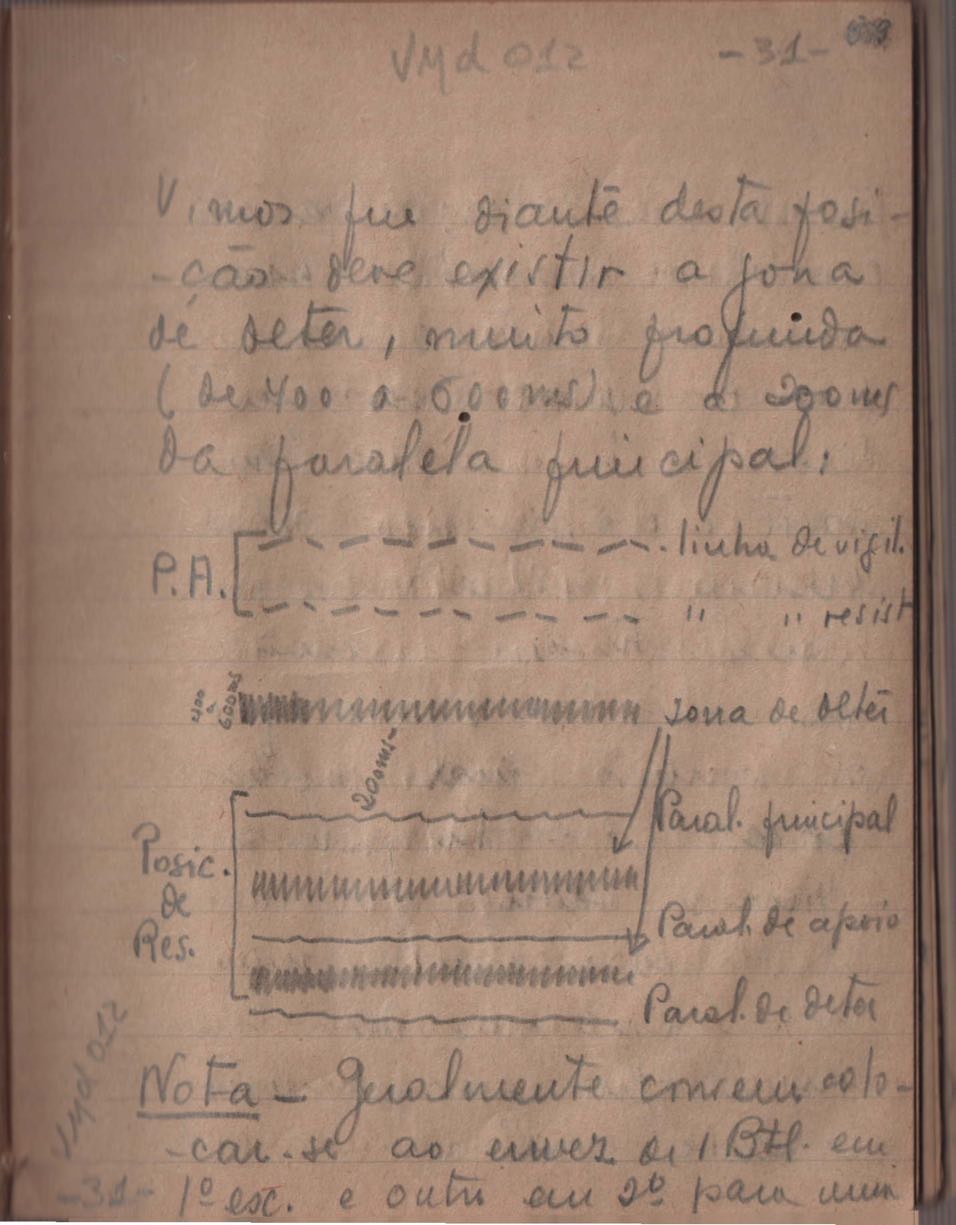 Vyd 012 -31-
Vimos que diante desta posi-
-ção deve existir a zona
de detēr, muito profunda
(de 400 a 600ms) e a 200ms
da paralela principal:
P.A. linha de vigil.
" " resist
400 a 600ms zona de detēr
200ms-
Paral. principal
Posic. de Res.
Paral. de apoio
Paral. de deter
Nota - Geralmente convem colo-
-car-se ao envez de 1 Btl. em
1º esc. e outro em 2º para uma
Vyd 012
-31-